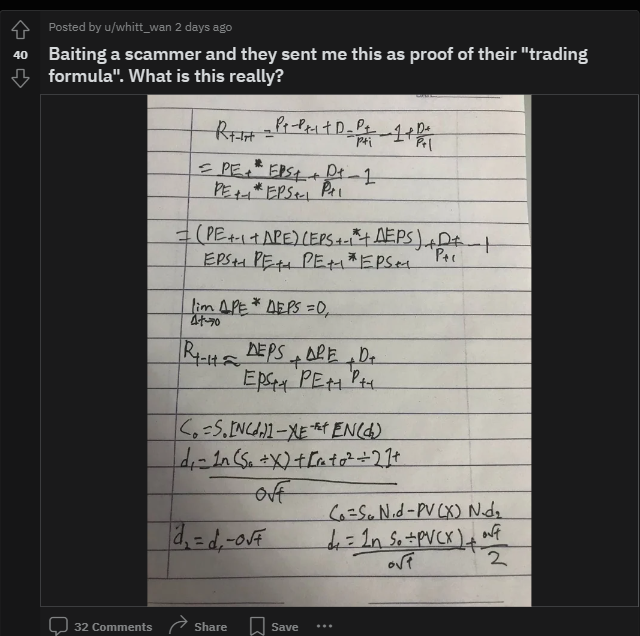 Posted by u/whitt_wan 2 days ago
40
Baiting a scammer and they sent me this as proof of their "trading
formula". What is this really?
Rt-1,t = Pt-Pt-1+D = Pt/Pt-1 - 1 + Dt/Pt-1
= PEt * EPSt / PEt-1 * EPSt-1 + Dt/Pt-1 - 1
= (PEt-1 + ΔPE)(EPSt-1 * + ΔEPS) + Dt/Pt-1 - 1
EPSt-1 PEt-1 PEt-1 * EPSt-1
lim ΔPE * ΔEPS = 0,
Δt→0
Rt-1t ≈ ΔEPS/EPSt-1 + ΔPE/PEt-1 + Dt/Pt-1
C₀ = S₀[N(d₁)] - XE⁻ʳᶠᵗ[N(d₂)
d₁ = ln(S₀ ÷ X) + [r + σ² ÷ 2]t
σ√t
C₀ = S₀ N·d - PV(X) N·d₂
d₂ = d₁ - σ√t
d₁ = ln S₀ ÷ PV(X) / σ√t + σ√t/2
32 Comments
Share
Save